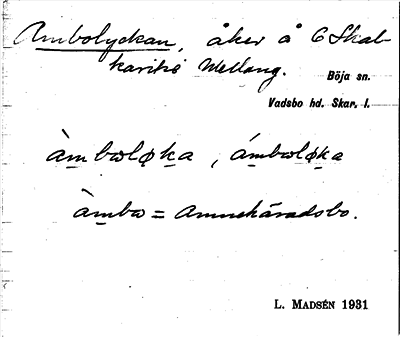 Ambolyckan, åker å 6 Skat-
Mellang.
Böja sn.
Vadsbo hd. Skar. l.
àmbωløka, ámbωløka
àmbω = Amnehäradsbo.
L. MADSÉN 1931